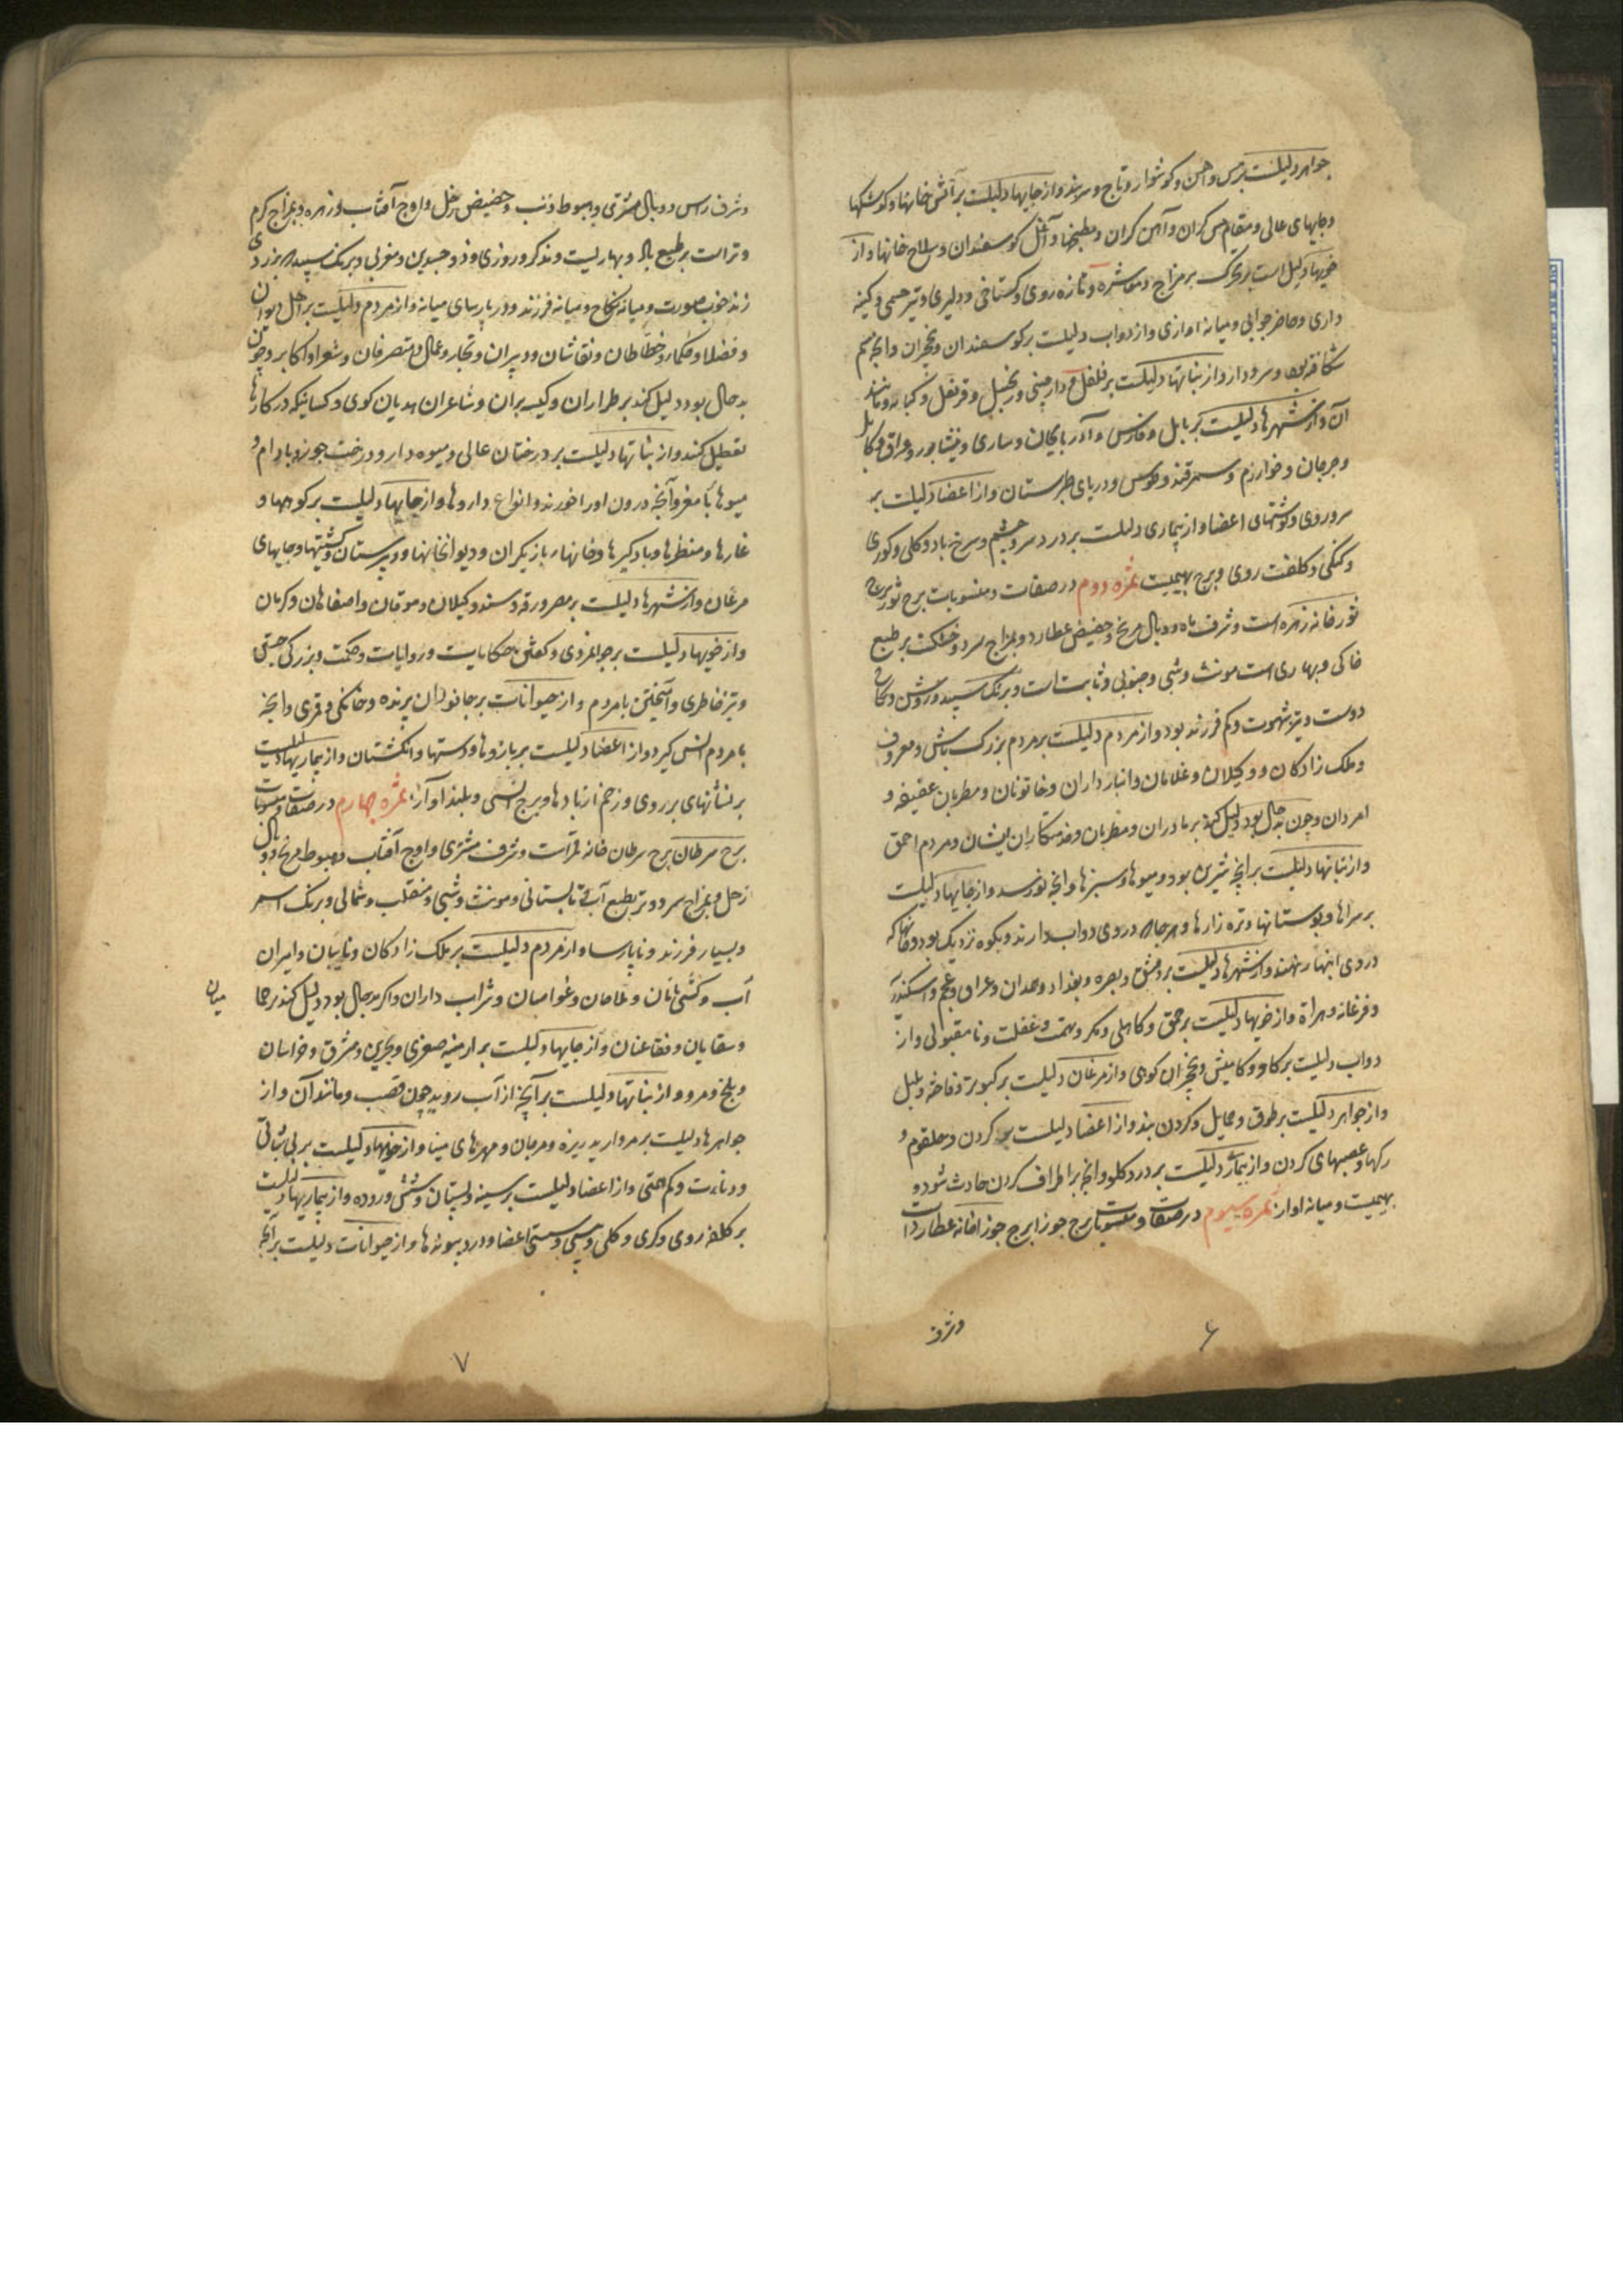 جواهر دلیلست بر مس و آهن و کوشوار و تاج و سربند و از جایها دلیلست بر آتش خانها و کوشکها
و جایهای عالی و مقام مس کران و آهن کران و مطبخها و آغل کوسفندان و سلاح خانها و از
خویها دلیل است بر تحرک بر مزاج و معاشره و تازه روی و کستاخی و دلیری و تیز حسمی و کینه
داری و حاضر جوابی و میانه اوازی و از دواب دلیلست بر کوسفندان و نخجیران و آنچه سم
شکافته بود و سرو دارد و از نباتها دلیلست بر فلفل و دارچینی و زنجبیل و قرنفل و کبابه و مانند
آن و از شهرها دلیلست بر بابل و فارس و آذربایجان و ساری و نیشابور و عراق و کابل
و جرجان و خوارزم و سمرقند و طوس و دریای طبرستان و از اعضا دلیلست بر
سر و روی و کوشتهای اعضا و از بیماری دلیلست بر درد سر و چشم و سرخ باد و کلی و کوری
و کنکی و کلفت روی و برج بهیمیت ثمره دوم در صفات و منسوبات برج ثور برج
ثور خانه زهره است و شرف ماه و وبال مریخ و حضیض عطارد و بمزاج سرد و خشکست بر طبع
خاکی و بهاری است مونث و شبی و جنوبی و ثابت است و برنک سپید و روشن و نکاح
دوست و تیز شهوت و کم فرزند بود و از مردم دلیلست بر مردم بزرک باش و معروف
و ملک زادکان و وکیلان و غلامان و انبار داران و خاتونان و مطربان عفیفه و
امردان و چون بد حال بود دلیل کند بر مادران و مطربان و خدمتکاران ایشان و مردم احمق
و از نباتها دلیلست بر آنچه شیرین بود و میوها و سبزها و آنچه نورسد و از جایها دلیلست
بر سراها و بوستانها و تره زارها و هر جای در وی دواب دارند و بکوه نزدیک بود و خانها که
در وی انبار نهند و از شهرها دلیلست بر دمشق و بصره و بغداد و همدان و عراق و عجم و اسکندر
و فرغانه و هراة و از خویها دلیلست بر حمق و کاهلی و مکر و همت و غفلت و نا مقبولی و از
دواب دلیلست بر کاو و کامیش و نخجیران کوهی و از مرغان دلیلست بر کبوتر و فاخته و بلبل
و از جواهر دلیلست بر طوق و حمایل و کردن بند و از اعضا دلیلست بر کردن و حلقوم و
رکها و عصبهای کردن و از بیماری دلیلست بر درد کلو و آنچه بر اطراف کردن حادث شود و
بهیمیت و میانه اواز ثمره سیوم در صفات و منسوبات برج جوزا برج جوزا خانه عطارد است
و شرف
۶
و شرف راس و وبال مشتری و هبوط ذنب و حضیض زحل و اوج آفتاب و زهره و بمزاج کرم
و تر است بر طبع باد و بهاریست و مذکر و روزی و ذو جسدین و مغربی و برنک سپید که بزردی
زند خوب صورت و میانه نکاح و میانه فرزند و در پارسای میانه و از مردم دلیلست بر اهل دیوان
و فضلا و حکما و خطاطان و نقاشان و دبیران و تجار و عمال و متصرفان و شعرا و اکابر و چون
بد حال بود دلیل کند بر طراران و کیسه بران و شاعران هذیان کوی و کسانیکه در کارها
تعطیل کنند و از نباتها دلیلست بر درختان عالی و میوه دار و درخت جوز و بادام و
میوها با مغز و آنچه درون اورا خورند و انواع داروها و از جایها دلیلست بر کوهها و
غارها و منظرها و بادکیرها و خانهاء بازیکران و دیوانخانها و دبیرستان و کشتیها و جایهای
مرغان و از شهرها دلیلست بر مصر و رقه و سند و کیلان و موقان و اصفاهان و کرمان
و از خویها دلیلست بر جوانمردی و کفتن حکایات و روایات و حکمت و بزرکی جستن
و تیز خاطری و آمیختن با مردم و از حیوانات بر جانوران پرنده و خانکی و قمری و آنچه
با مردم انس کیرد و از اعضا دلیلست بر بازوها و دستها و انکشتان و از بیماریها دلیلست
بر نشانهای بر روی و زخم از بادها و برج انسی و بلند آواز ثمره چهارم در صفات و منسوبات
برج سرطان برج سرطان خانه قمر است و شرف مشتری و اوج آفتاب و هبوط مریخ و وبال
زحل و بمزاج سرد و تر بطبع آب و تابستانی و مونث و شبی و منقلب و شمالی و برنک اسمر
و بسیار فرزند و ناپارسا و از مردم دلیلست بر ملک زادکان و نایبان و امیران
آب و کشتی بانان و ملاحان و غواصان و شراب داران و اکر بد حال بود دلیل کند بر حما
میان
و سقایان و فقاعیان و از جایها دلیلست بر ارمنیه صغری و بحرین و مشرق و خراسان
و بلخ و مرو و از نباتها دلیلست بر آنچه از آب روید چون قصب و مانند آن و از
جواهرها دلیلست بر مروارید ریزه و مرجان و مهرهای مینا و از خویها دلیلست بر بی ثباتی
و دناءت و کم همتی و از اعضا دلیلست بر سینه و پستان و شش و روده و از بیماریها دلیلست
بر کلفه روی و کری و کلی و پیسی و سستی اعضا و درد پیوندها و از حیوانات دلیلست بر آنچه
۷